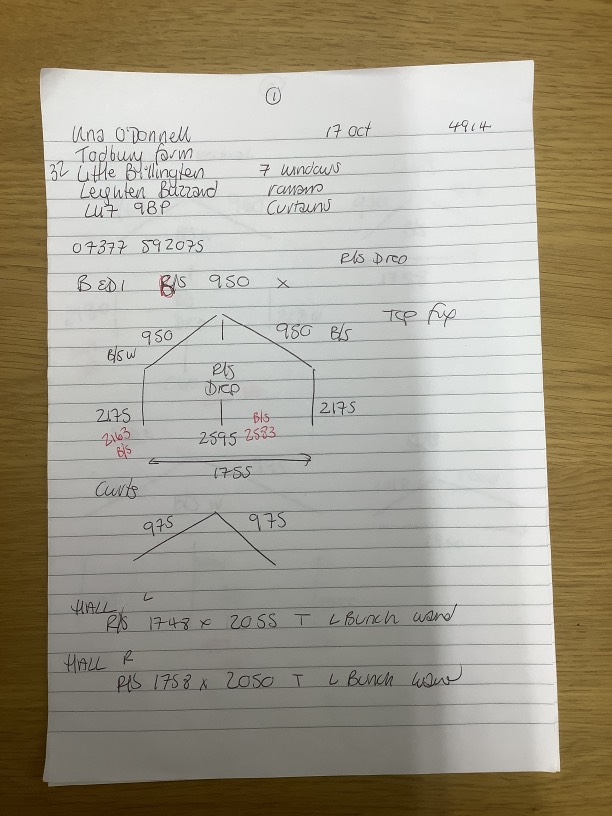 1
Una O'Donnell 17 Oct 4914
Todbury farm
32 Little Billington 7 windows
Leighten Buzzard romans
LU7 9BP Curtains
07377 592075
R/S Drop
BED1 B/S 950 x
Top fix
950 950 B/S
B/S W
R/S
Drop
2175 2175
2163 B/S
B/S 2595 2583
1755
Curts
975 975
HALL L
R/S 1748 x 2055 T L Bunch wand
HALL R
R/S 1758 x 2050 T L Bunch wand